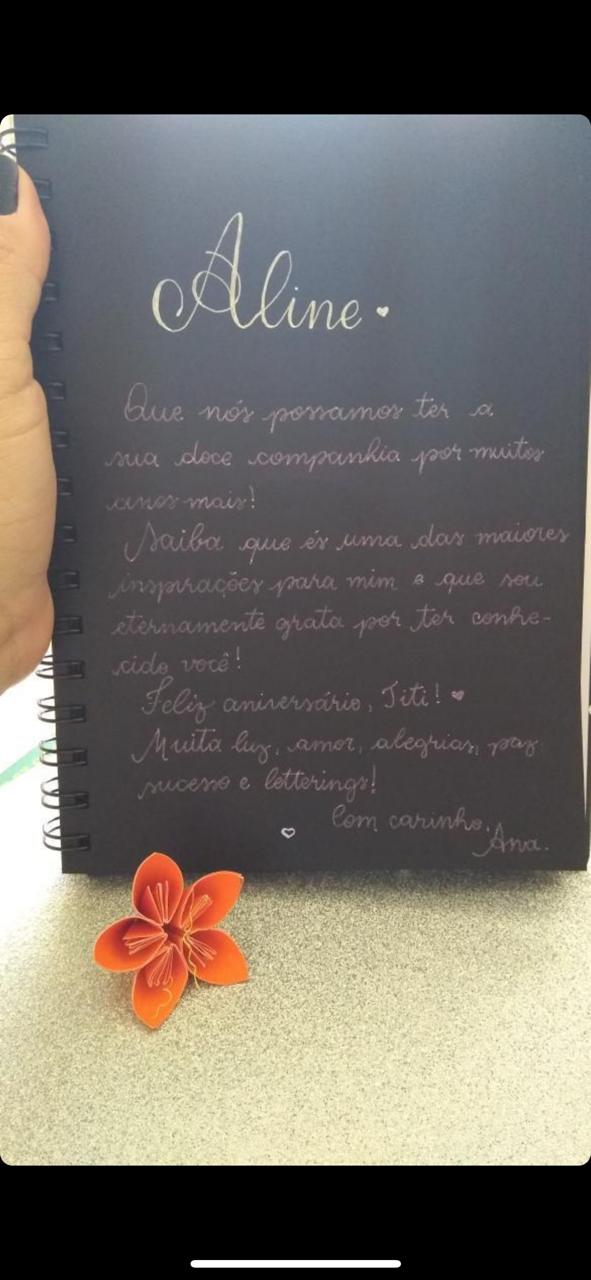 Aline
Que nós possamos ter a
sua doce companhia por muitos
anos mais!
Saiba que és uma das maiores
inspirações para mim e que sou
eternamente grata por ter conhe-
cido você!
Feliz aniversário, Titi! ♥
Muita luz, amor, alegrias, paz
sucesso e letterings!
Com carinho,
Ana.